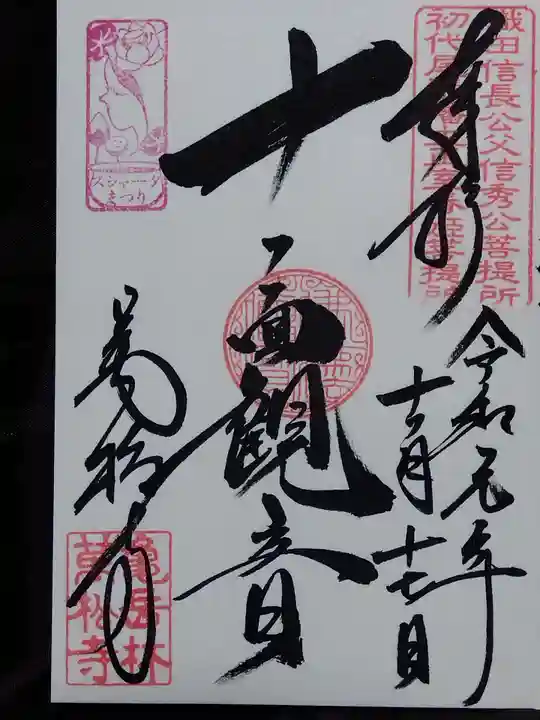 織田信長公父信秀公菩提所
奉拝
令和元年
十一月十七日
十一面観音
萬松寺
亀岳林
萬松寺
スジャータ
まつり